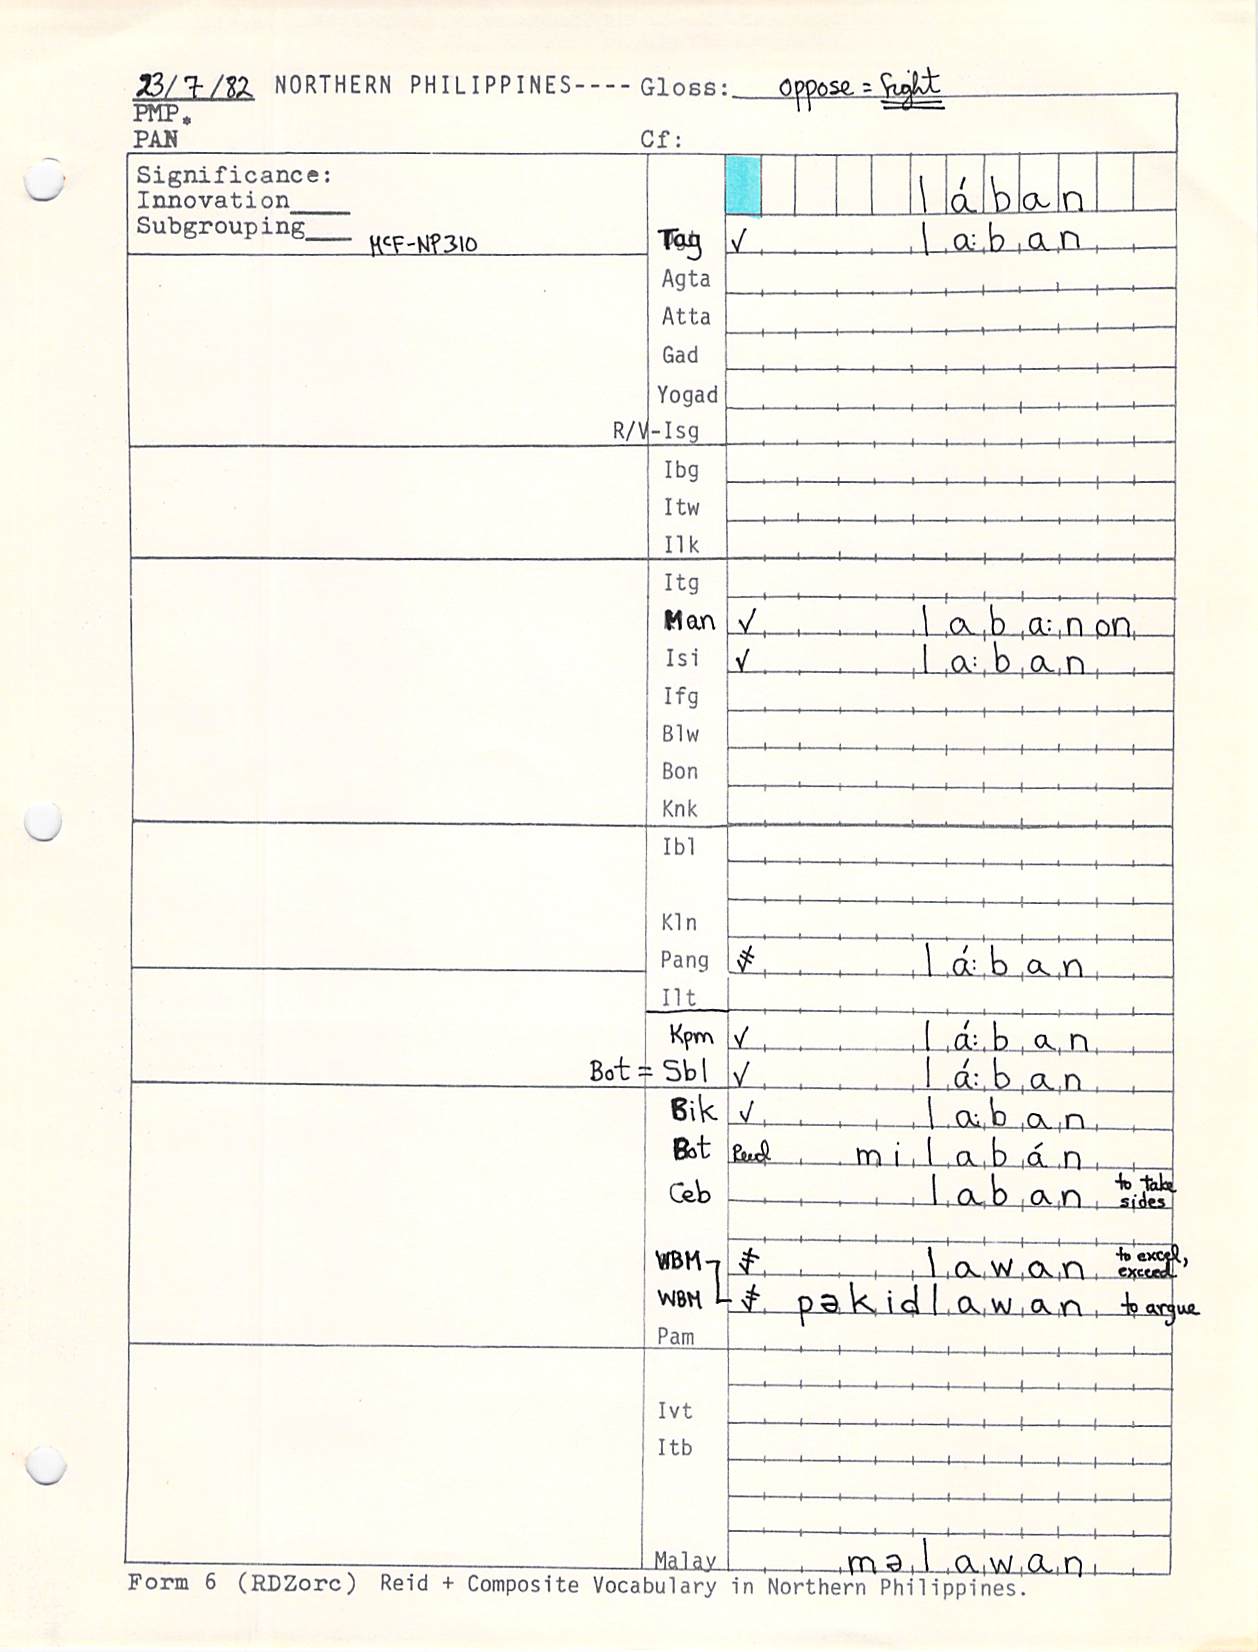 23/7/82 NORTHERN PHILIPPINES---- Gloss: oppose = fight
PMP.
PAN Cf:
Significance:
Innovation____
Subgrouping____ McF-NP310
lában
Tag ✓ la:ban
Agta
Atta
Gad
Yogad
R/V-Isg
Ibg
Itw
Ilk
Itg
Man ✓ laba:non
Isi ✓ la:ban
Ifg
Blw
Bon
Knk
Ibl
Kln
Pang ≠ lá:ban
Ilt
Kpm ✓ lá:ban
Bot = Sbl ✓ lá:ban
Bik ✓ la:ban
Bot Reid milabán
Ceb laban to take sides
WBM ≠ lawan to excel, exceed
WBM ≠ pəkidlawan to argue
Pam
Ivt
Itb
Malay məlawan
Form 6 (RDZorc) Reid + Composite Vocabulary in Northern Philippines.